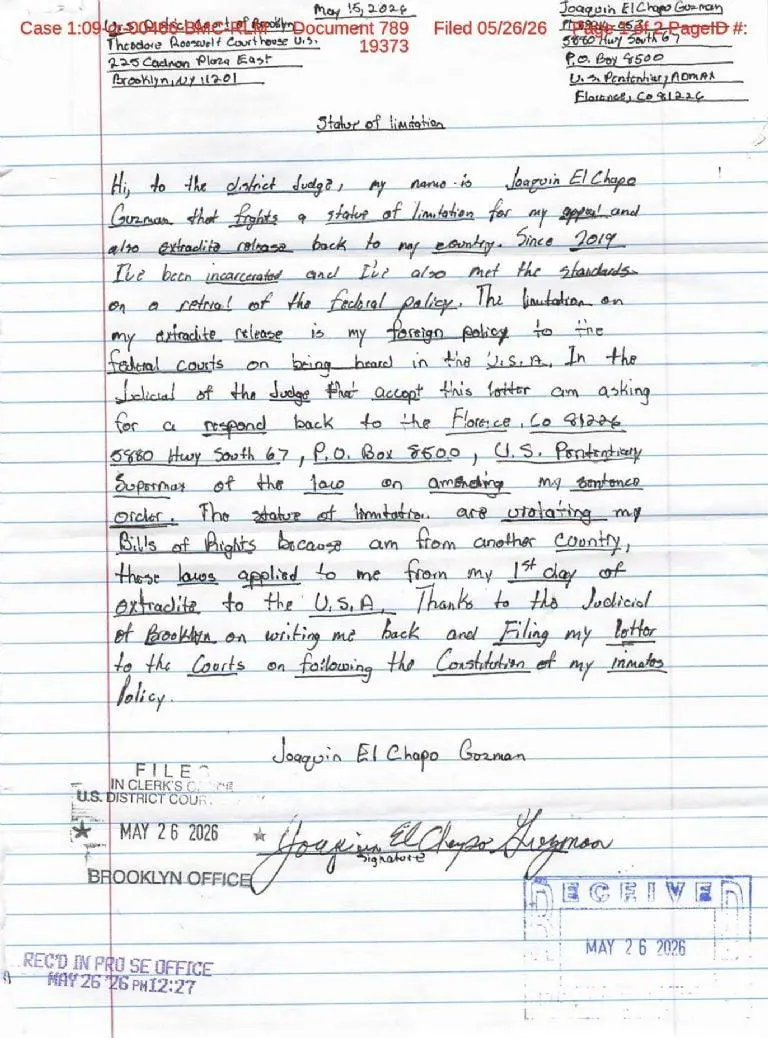 May 15, 2026
Joaquin El Chapo Gozman
Case 1:09-cr-00466-BMC-RLM Document 789 Filed 05/26/26 Page 1 of 2 PageID #:
19373
U.S. District Court of Brooklyn
Theodore Roosevelt Courthouse U.S.
225 Cadman Plaza East
Brooklyn, NY 11201
5880 Hwy South 67
P.O. Box 8500
U.S. Penitentiary, ADMAX
Florence, Co 81226
Statue of limitation
Hi, to the district Judge, my name is Joaquin El Chapo
Guzman that fights a statue of limitation for my appeal and
also extradite release back to my country. Since 2019
I've been incarcerated and I've also met the standards
on a retrial of the federal policy. The limitation on
my extradite release is my foreign policy to the
federal courts on being heard in the U.S.A. In the
Judicial of the Judge that accept this letter am asking
for a respond back to the Florence, Co 81226
5880 Hwy South 67, P.O. Box 8500, U.S. Penitentiary
Supermax of the law on amending my sentence
order. The statue of limitation are violating my
Bill's of Rights because am from another country,
these laws applied to me from my 1st day of
extradite to the U.S.A. Thanks to the Judicial
of Brooklyn on writing me back and Filing my letter
to the Courts on following the Constitution of my inmates
Policy.
Joaquin El Chapo Gozman
FILE
IN CLERK'S
U.S. DISTRICT COUR
★ MAY 26 2026 ★
BROOKLYN OFFICE
Joaquin El Chapo Guzman
Signature
RECEIVED
MAY 26 2026
REC'D IN PRO SE OFFICE
MAY 26 '26 PM12:27